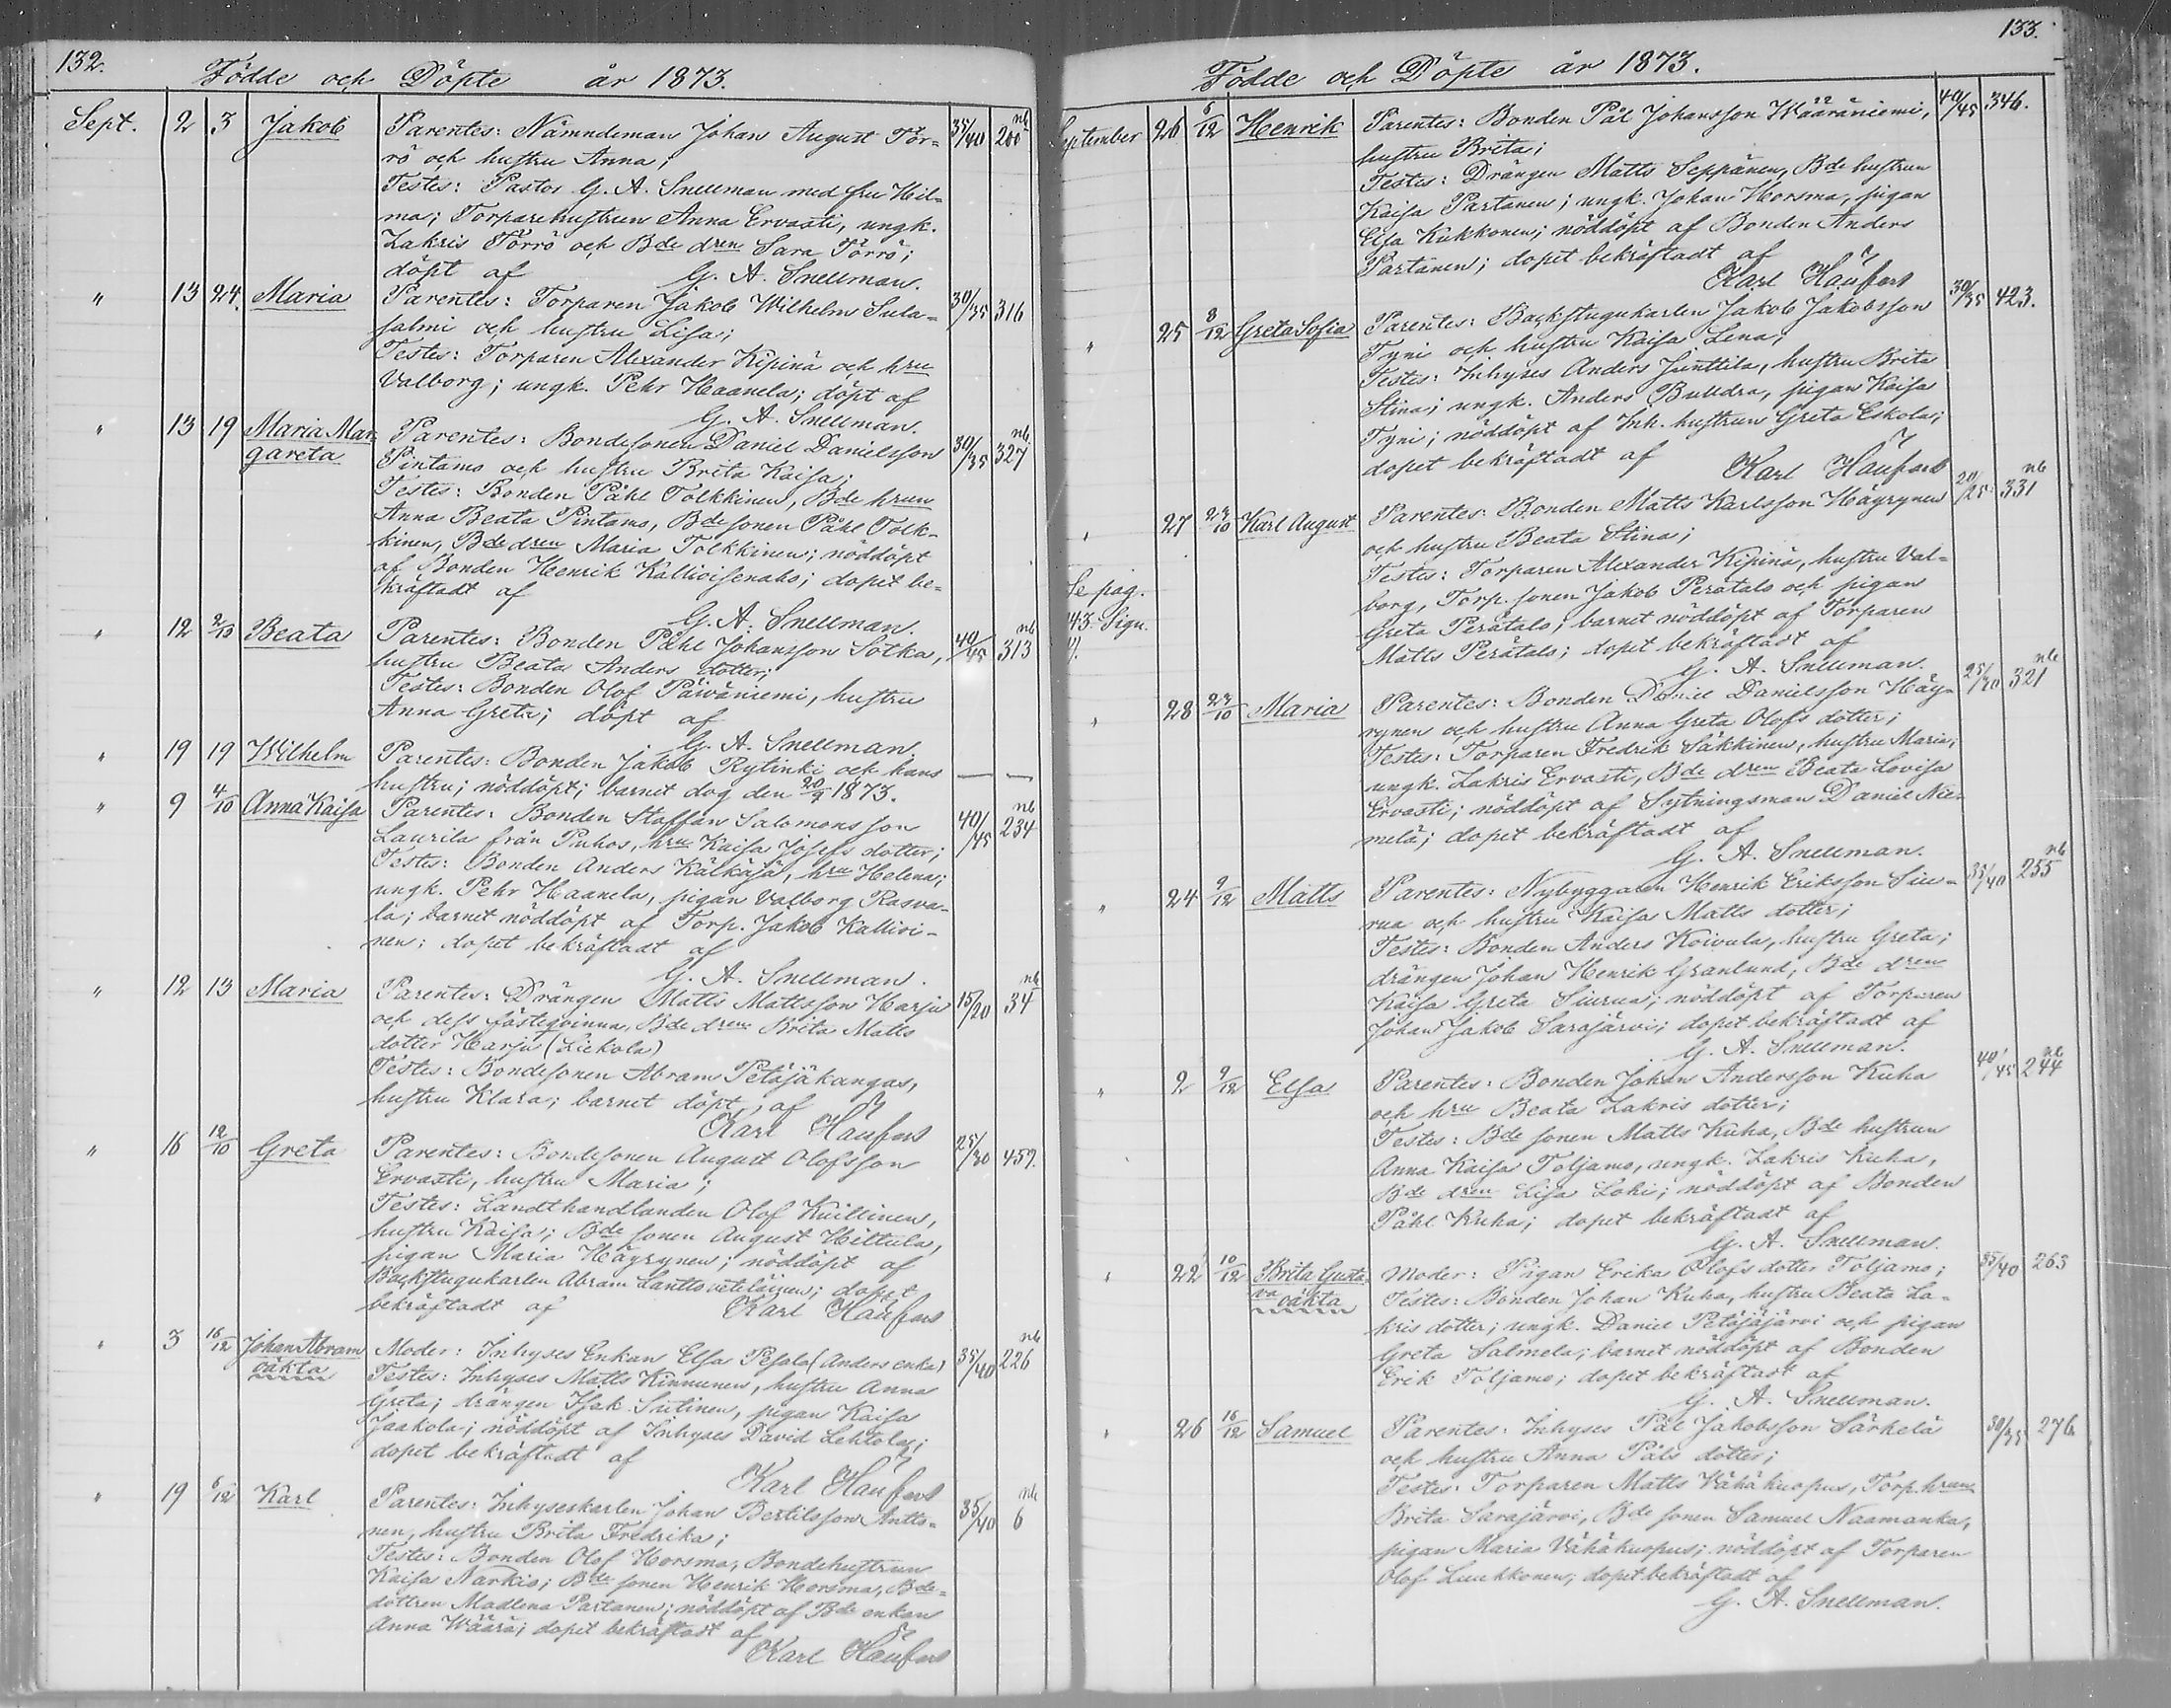 132.
Födde och Döpte år 1873.
Sept. 2 3 Jakob Parentes: Nämndeman Johan August Tör= 35/40 nb 200
rö och hustru Anna;
Testes: Pastor G. A. Snellman med fru Hil=
ma; Torparehustrun Anna Ervasti, ungk.
Zakris Törrö och Bde dren Sara Törrö;
döpt af G. A. Snellman.
" 13 24. Maria Parentes: Torparen Jakob Wilhelm Sula= 30/35 316
salmi och hustru Lisa;
Testes: Torparen Alexander Kipinä och hru
Valborg; ungk. Pehr Haanela; döpt af
G. A. Snellman.
" 13 19 Maria Mar Parentes: Bondesonen Daniel Danielsson 30/35 nb. 327
gareta Pintamo och hustru Brita Kaisa;
Testes: Bonden Påhl Tolkkinen, Bde hrun
Anna Beata Pintamo, Bde sonen Påhl Tolk-
kinen, Bde dren Maria Tolkkinen; nöddöpt
af Bonden Henrik Kallioisenaho; dopet be-
kräftadt af
G. A. Snellman.
" 12 2/10 Beata Parentes: Bonden Påhl Johansson Sotka, 40/45 nb 313
hustru Beata Anders dotter;
Testes: Bonden Olof Päiväniemi, hustru
Anna Greta; döpt af
G. A. Snellman.
" 19 19 Wilhelm Parentes: Bonden Jakob Rytinki och hans — —
hustru; nöddöpt; barnet dog den 20/9 1873.
" 9 4/10 Anna Kaisa Parentes: Bonden Staffan Salomonsson 40/45 nb 234
Laurila från Puhos, hru Kaisa Josefs dotter;
Testes: Bonden Anders Kälkäjä, hru Helena;
ungk. Pehr Haanela, pigan Valborg Rasva-
la; barnet nöddöpt af Torp. Jakob Kallioi-
nen; dopet bekräftadt af
G. A. Snellman.
" 12 13 Maria Parentes: Drängen Matts Mattsson Harju 15/20 nb 34
och dess fästeqvinna, Bde dren Brita Matts
dotter Harju (Liekola)
Testes: Bondesonen Abram Petäjäkangas,
hustru Klara; barnet döpt, af
Karl Haufors
" 16 12/10 Greta Parentes: Bondesonen August Olofsson 25/30 459.
Ervasti, hustru Maria;
Testes: Landthandlanden Olof Kuillinen,
hustru Kaisa; Bde sonen August Hiltula,
pigan Maria Häyrynen; nöddöpt af
Backstugukarlen Abram Lanttoveteläinen; dopet
bekräftadt af Karl Haufors
" 3 16/12 Johan Abram Moder: Inhyses Enkan Elsa Pesala (Anders enka) 35/40 nb 226
oäkta Testes: Inhyses Matts Kinnunen, hustru Anna
Greta; drängen Isak Sutinen, pigan Kaisa
Jaakola; nöddöpt af Inhyses David Lehtola;
dopet bekräftadt af
Karl Haufors
" 19 6/12 Karl Parentes: Inhyseskarlen Johan Bertilsson Antto- 35/40 nb 6
nen, hustru Brita Fredrika;
Testes: Bonden Olof Horsma, Bondehustrun
Kaisa Narkio; Bde sonen Henrik Horsma, Bde-
dottren Madlena Partanen; nöddöpt af Bde enkan
Anna Wäärä; dopet bekräftadt af
Karl Haufors
133.
Födde och Döpte år 1873.
September 26 6/12 Henrik Parentes: Bonden Pål Johansson Wääräniemi, 40/45 346.
hustru Brita;
Testes: Drängen Matts Seppänen, Bde hustrun
Kaisa Partanen; ungk. Johan Horsma, pigan
Elsa Kukkonen; nöddöpt af Bonden Anders
Partanen; dopet bekräftadt af
Karl Haufors
" 25 8/12 Greta Sofia Parentes: Backstugukarlen Jakob Jakobsson 30/35 423.
Tyni och hustru Kaisa Lena;
Testes: Inhyses Anders Junttila, hustru Brita
Stina; ungk. Anders Bulldra, pigan Kaisa
Tyni; nöddöpt af Inh. hustrun Greta Eskola;
dopet bekräftadt af
Karl Haufors
" 27 27/10 Karl August Parentes: Bonden Matts Karlsson Häyrynen 20/25 nb 331
och hustru Beata Stina;
Testes: Torparen Alexander Kipinä, hustru Val-
Se pag. borg, Torp. sonen Jakob Perätalo och pigan
143. Sign. Greta Perätalo; barnet nöddöpt af Torparen
Matts Perätalo; dopet bekräftadt af
G. A. Snellman.
" 28 27/10 Maria Parentes: Bonden Daniel Danielsson Häy- 25/30 nb 321
rynen och hustru Anna Greta Olofs dotter;
Testes: Torparen Fredrik Säkkinen, hustru Maria;
ungk. Zakris Ervasti, Bde dren Beata Lovisa
Ervasti; nöddöpt af Sytningsman Daniel Nie-
melä; dopet bekräftadt af
G. A. Snellman.
" 24 9/12 Matts Parentes: Nybyggaren Henrik Eriksson Siu- 35/40 nb 255
rua och hustru Kaisa Matts dotter;
Testes: Bonden Anders Koivula, hustru Greta;
drängen Johan Henrik Granlund, Bde dren
Kaisa Greta Siurua; nöddöpt af Torparen
Johan Jakob Sarajärvi; dopet bekräftadt af
G. A. Snellman.
" 2 9/12 Elsa Parentes: Bonden Johan Andersson Kuha 40/45 nb 244
och hru Beata Zakris dotter;
Testes: Bde sonen Matts Kuha, Bde hustrun
Anna Kaisa Toljamo, ungk. Zakris Kuha,
Bde dren Lisa Loki; nöddöpt af Bonden
Påhl Kuha; dopet bekräftadt af
G. A. Snellman.
" 22 10/12 Brita Gusta Moder: Pigan Erika Olofs dotter Toljamo; 35/40 263
va oäkta Testes: Bonden Johan Kuha, hustru Beata Za-
kris dotter; ungk. Daniel Petäjäjärvi och pigan
Greta Salmela; barnet nöddöpt af Bonden
Erik Toljamo; dopet bekräftadt af
G. A. Snellman.
" 26 16/12 Samuel Parentes: Inhyses Pål Jakobsson Särkelä 30/35 276.
och hustru Anna Påls dotter;
Testes: Torparen Matts Vähäkuopus, Torp. hrun
Brita Sarajärvi, Bde sonen Samuel Naamanka,
pigan Maria Vähäkuopus; nöddöpt af Torparen
Olof Luukkonen; dopet bekräftadt af
G. A. Snellman.